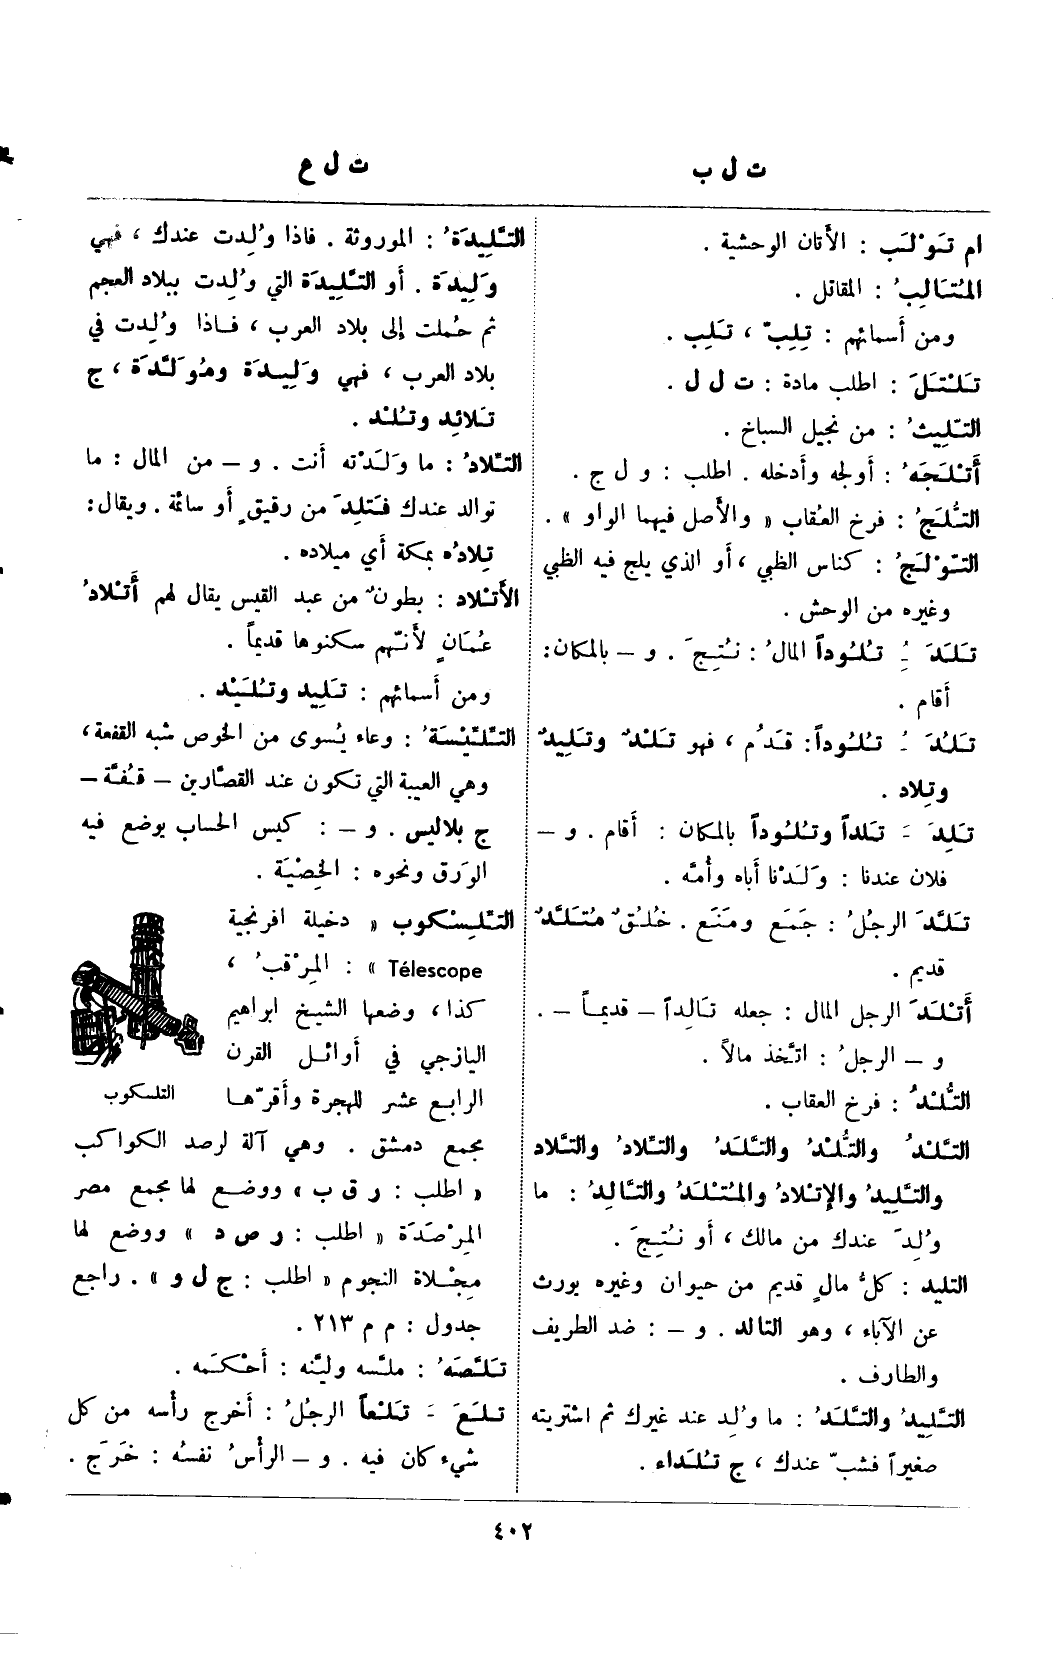 ت ل ب
ت ل ع
ام تَوْلَب : الأتان الوحشية .
المُتَالِبُ : المقاتل .
ومن أسمائهم : تِلِبّ ، تَلِب .
تَلْتَلَ : اطلب مادة : ت ل ل .
التِّلِيثُ : من نجيل السباخ .
أَتْلَجَه ُ : أولجه وأدخله . اطلب : و ل ج .
التُّلَجُ : فرخ العُقاب « والأصل فيهما الواو » .
التَّوْلَجُ : كناس الظبي ، أو الذي يلج فيه الظبي
وغيره من الوحش .
تَلَدَ ـُِ تُلُوداً المالُ : نُتِجَ . و – بالمكان :
أقام .
تَلُدَ ـُ تُلُوداً : قَدُم ، فهو تَلْدٌ وتَلِيدٌ
وتِلاد .
تَلِدَ ـَ تَلَداً وتُلُوداً بالمكان : أقام . و –
فلان عندنا : وَلَدْنا أباه وأُمَّه .
تَلَّدَ الرجلُ : جَمَع ومَنَع . خُلُقٌ مُتَلَّدٌ
قديم .
أَتْلَدَ الرجل المال : جعله تَالِداً – قديماً – .
و – الرجلُ : اتَّخذ مالاً .
التُّلْدُ : فرخ العقاب .
التَّلْدُ والتُّلْدُ والتَّلَدُ والتِّلادُ والتَّلاد
والتَّلِيدُ والإتلادُ والمُتْلَدُ والتَّالِدُ : ما
وُلِدَ عندك من مالك ، أو نُتِجَ .
التليد : كلُّ مالٍ قديم من حيوان وغيره يورث
عن الآباء ، وهو التالد . و – : ضد الطريف
والطارف .
التَّلِيدُ والتَّلَدُ : ما وُلِد عند غيرك ثم اشتريته
صغيراً فشبّ عندك ، ج تُلَداء .
التَّلِيدَةُ : الموروثة . فاذا وُلِدت عندك ، فهي
وَلِيدَة . أو التَّلِيدَة التي وُلِدت ببلاد العجم
ثم حُملت إلى بلاد العرب ، فاذا وُلِدت في
بلاد العرب ، فهي وَلِيدَة ومُوَلَّدَة ، ج
تَلائِد وتُلْد .
التِّلادُ : ما وَلَدْته أنت . و – من المال : ما
توالد عندك فتَلِدَ من رقيقٍ أو سائمة . ويقال :
تِلادُه بمكة أي ميلاده .
الأَتْلاد : بطونٌ من عبد القيس يقال لهم أَتْلادُ
عُمَانٍ لأنّهم سكنوها قديماً .
ومن أسمائهم : تَلِيد وتُلَيْد .
التِّلِّيْسَة ُ : وعاء يُسوى من الخوص شبه القفعة ،
وهي العيبة التي تكون عند القصّارين – قُفَّة –
ج بلاليس . و – : كيس الحساب يوضع فيه
الورَق ونحوه : الخِصْيَة .
التِلِسْكوب « دخيلة افرنجية
Télescope » : المِرْقبُ ،
كذا ، وضعها الشيخ ابراهيم
اليازجي في أوائل القرن
الرابع عشر للهجرة وأقرّها
التلسكوب
مجمع دمشق . وهي آلة لرصد الكواكب
« اطلب : ر ق ب » ووضع لها مجمع مصر
المِرْصَدَة « اطلب : ر ص د » ووضع لها
مِجْلاة النجوم « اطلب : ج ل و » . راجع
جدول : م م ٢١٣ .
تَلَّصَه ُ : ملّسه وليّنه : أَحْكَمه .
تَلَعَ ـَ تَلْعاً الرجُلُ : أخرج رأسه من كل
شيء كان فيه . و – الرأسُ نفسُه : خَرَج .
٤٠٢